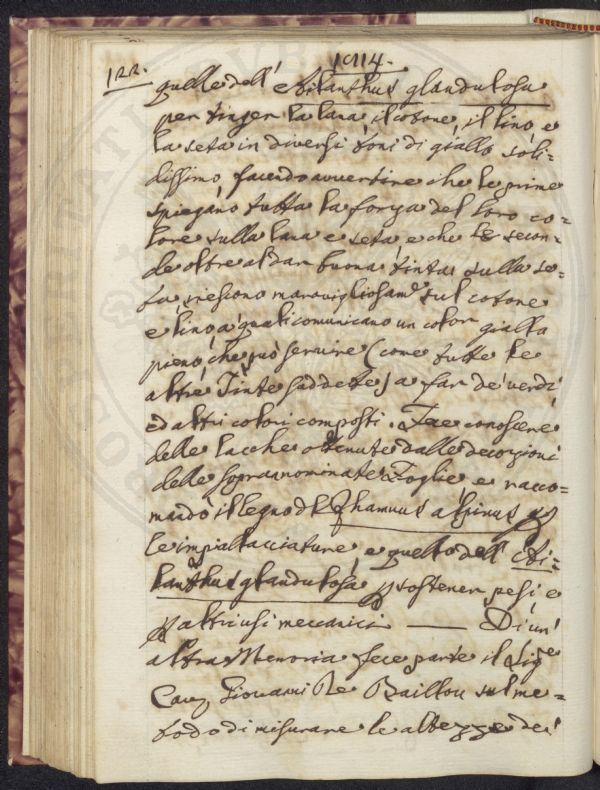 122.
1914.
quelle dell' Ailanthus glandulosa
per tinger la lana, il cotone, il lino, e
la seta in diversi toni di giallo soli=
dissimo facendo avvertire che le prime
spiegano tutta la forza del loro co=
lore sulla lana e seta e che le secon=
de oltre al dar buona tinta sulla se=
ta riescono maravigliosam.e sul cotone
e lino, a quali comunicano un color giallo
pieno, che può servire (come tutte le
altre Tinte suddette) a far de' verdi
ed altri colori composti. Fece conoscere
delle lacche ottenute dalle decozioni
delle sopranominate Foglie e racco=
mandò il legno del Rhamnus alpinus p
le impiallacciature, e quello dell' Ai=
lanthus glandulosa p sostener pesi e
p altri usi meccanici — Di un'
altra Memoria fece parte il Sig.re
Cav. Giovanni De Baillou sul me=
todo di misurare le altezze dei